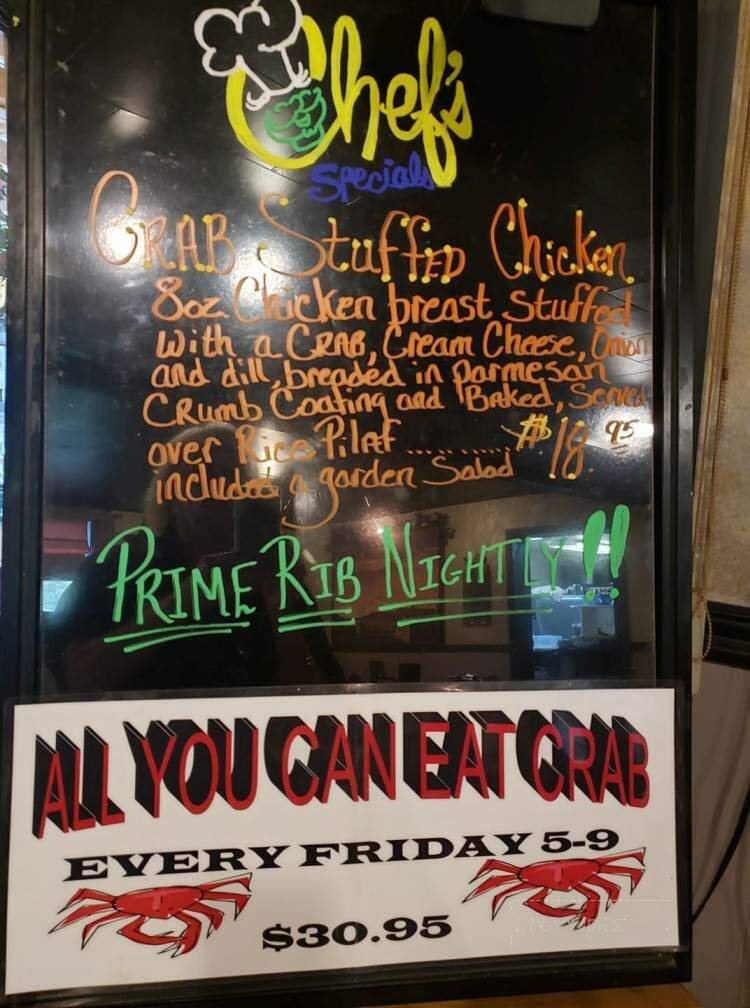 Chef's
Specials
CRAB Stuffed Chicken
8oz Chicken breast stuffed
with a CRAB, Cream Cheese, Onion
and dill, breaded in parmesan
CRumb Coating and Baked, Served
over Rice Pilaf ............ $18.95
includes a garden Salad
PRIME RIB NIGHTLY!!
ALL YOU CAN EAT CRAB
EVERY FRIDAY 5-9
$30.95